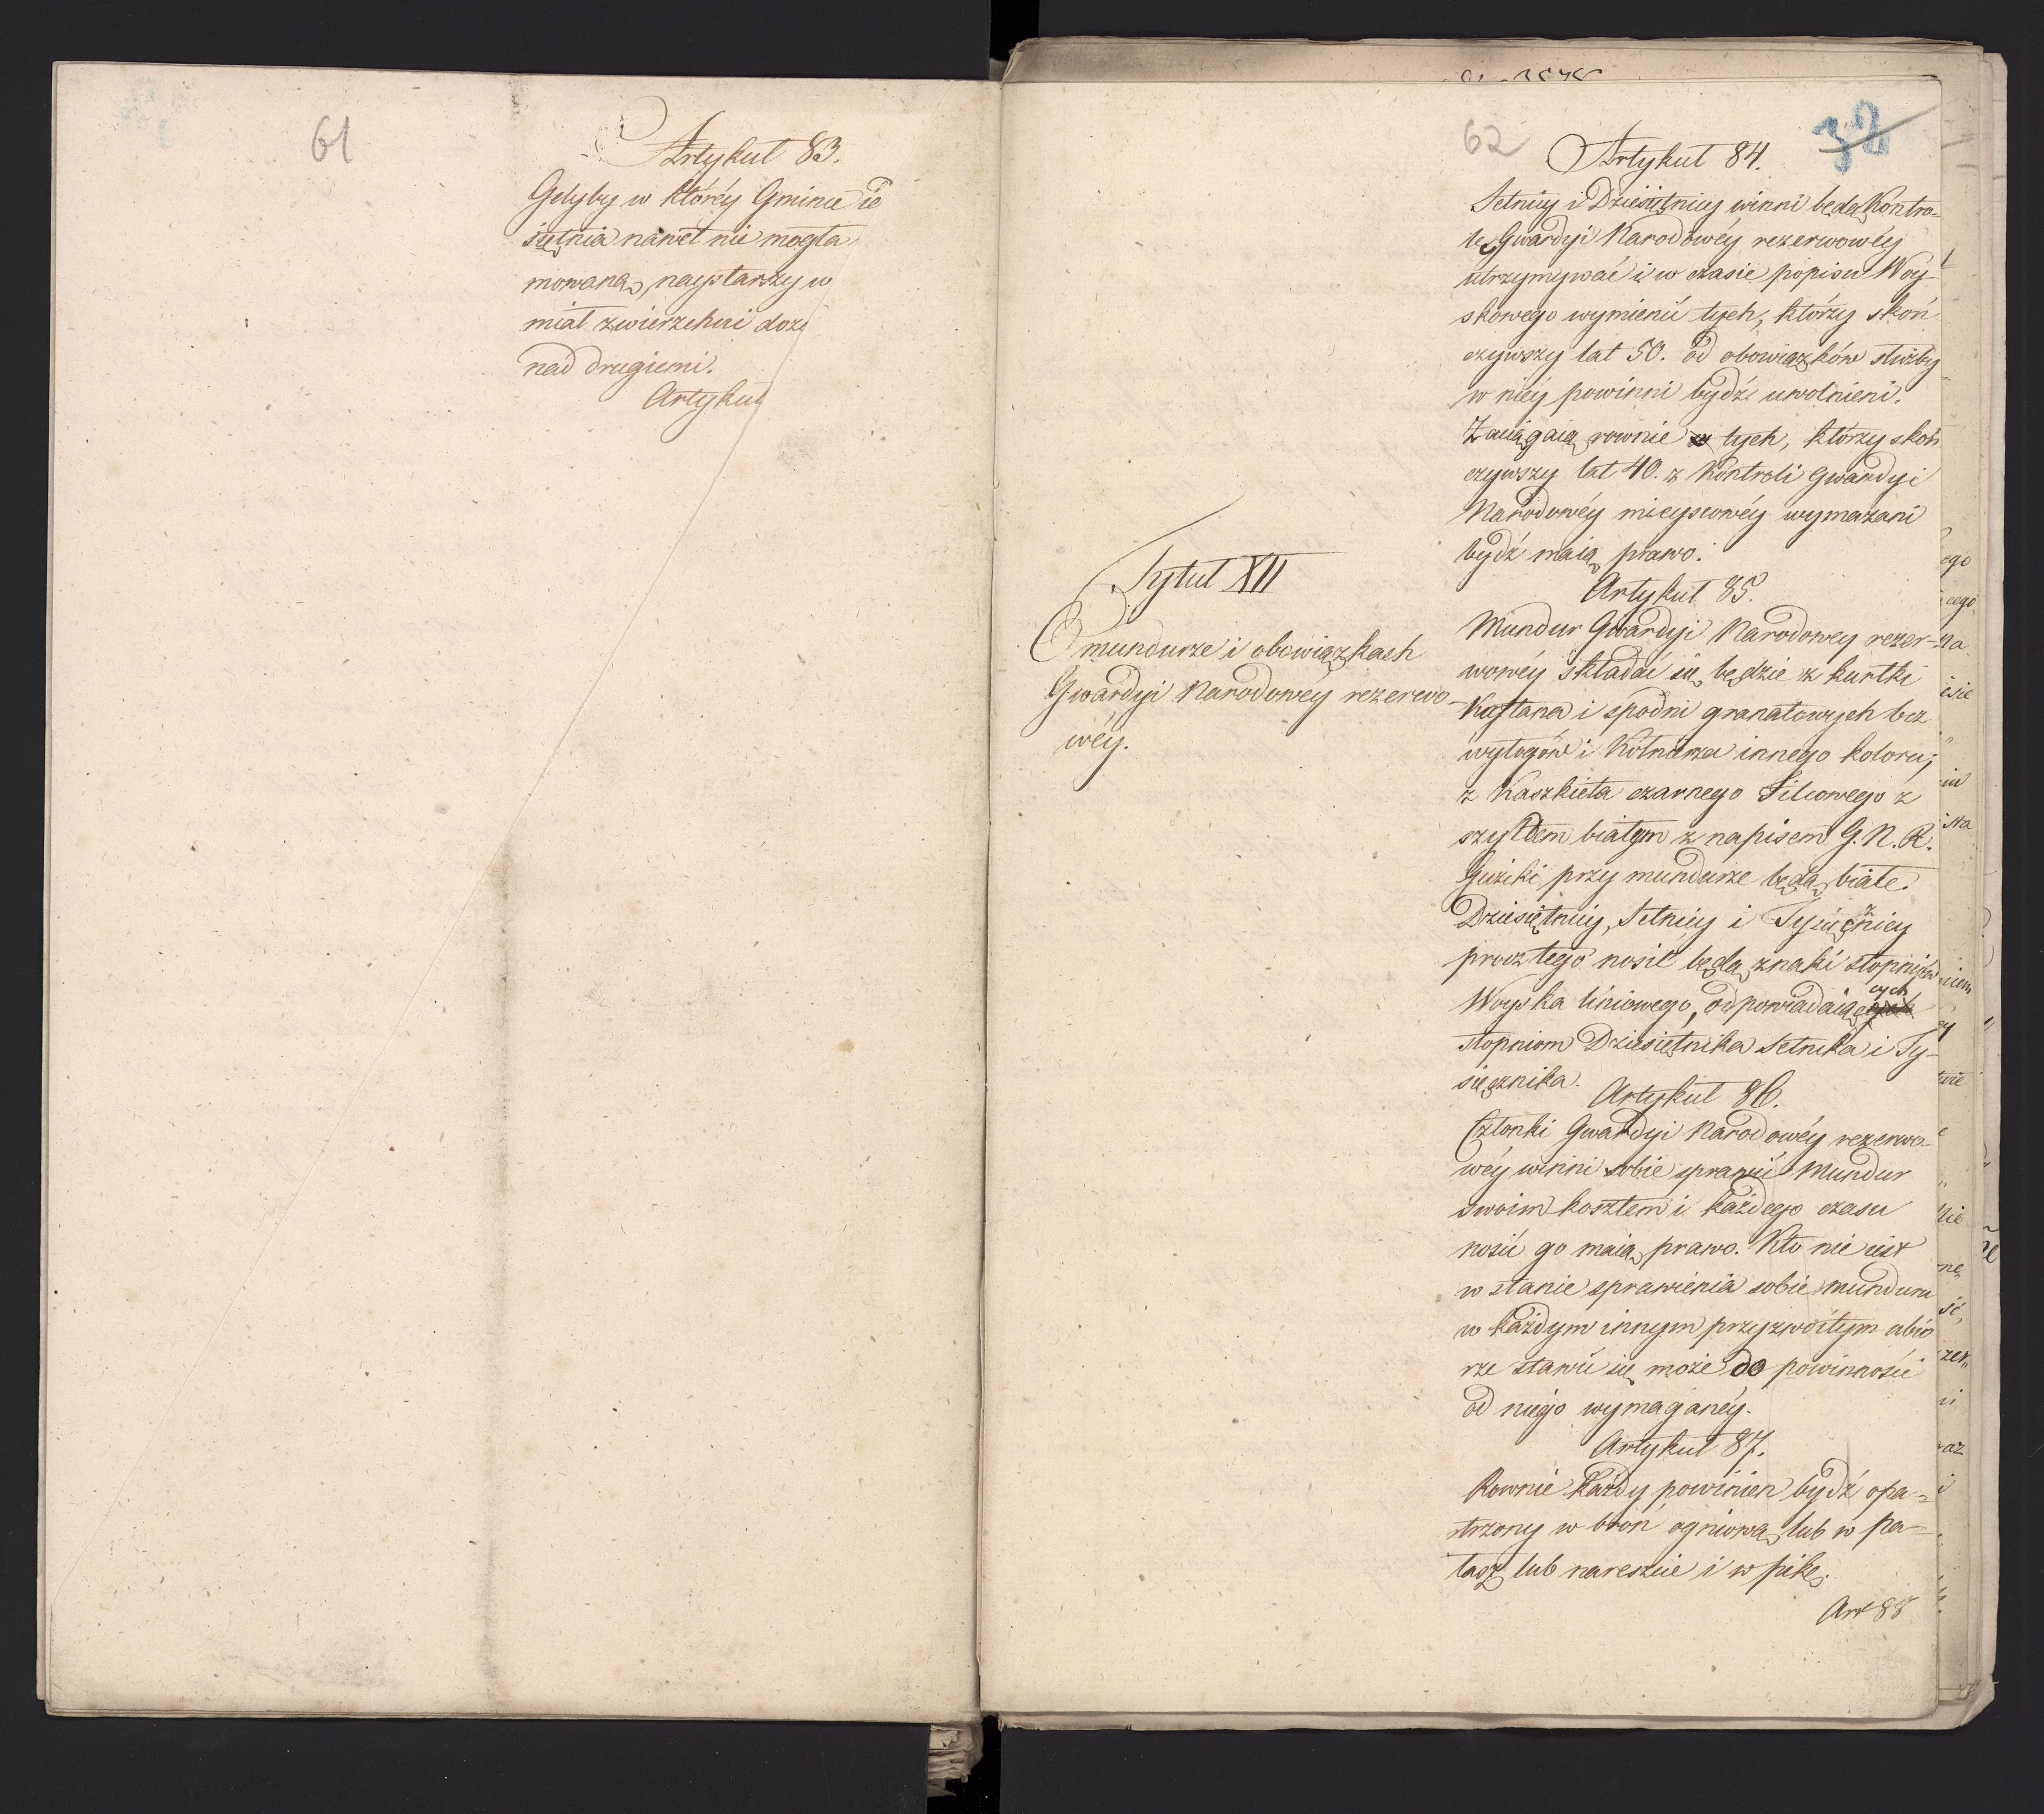 61
Artykuł 83.
Gdyby w któréy Gminie ie
siętnia nawet nie mogła
mowaną, naystarszy w
miał zwierzchni doz
nad drugiemi.
Artykuł
62
32
Artykuł 84.
Setnicy i Dziesiętnicy winni będą Kontro-
lę Gwardyi Narodowéy rezerwowéy
utrzymywać i w czasie popisu Woy-
skowego wymienić tych, którzy skoń
czywszy lat 50. od obowiązków służby
w niéy powinni bydź uwolnieni.
Zaciągaią rownie tych, którzy skoń
czywszy lat 40. z Kontroli Gwardyi
Narodowéy mieyscowéy wymazani
bydź maią prawo.
Tytuł XII
O mundurze i obowiązkach
Gwardyi Narodowéy rezerwo-
wéy.
Artykuł 85.
Mundur Gwardyi Narodowey rezer-
wowéy składać się będzie z kurtki
Kaftana i spodni granatowych bez
wyłogów i Kołnierza innego koloru;
z Kaszkieta czarnego Filcowego z
szyldem białym z napisem G. N. R.
Guziki przy mundurze będą białe.
Dziesiętnicy, Setnicy i Tysięcznicy
procz tego nosić będą znaki stopniów
Woyska liniowego, odpowiadaiących
stopniom Dziesiętnika Setnika i Ty-
siącznika.
Artykuł 86.
Członki Gwardyi Narodowéy rezerwo-
wéy winni sobie sprawić Mundur
swoim kosztem i każdego czasu
nosić go maią prawo. Kto nie iest
w stanie sprawienia sobie munduru
w każdym innym przyzwoitym ubio
rze stawić się może do powinności
od niego wymaganéy.
Artykuł 87.
Rownie każdy powinien bydź opa-
trzony w broń ogniową lub w pa-
łasz lub nareszcie i w pikę.
Art 88